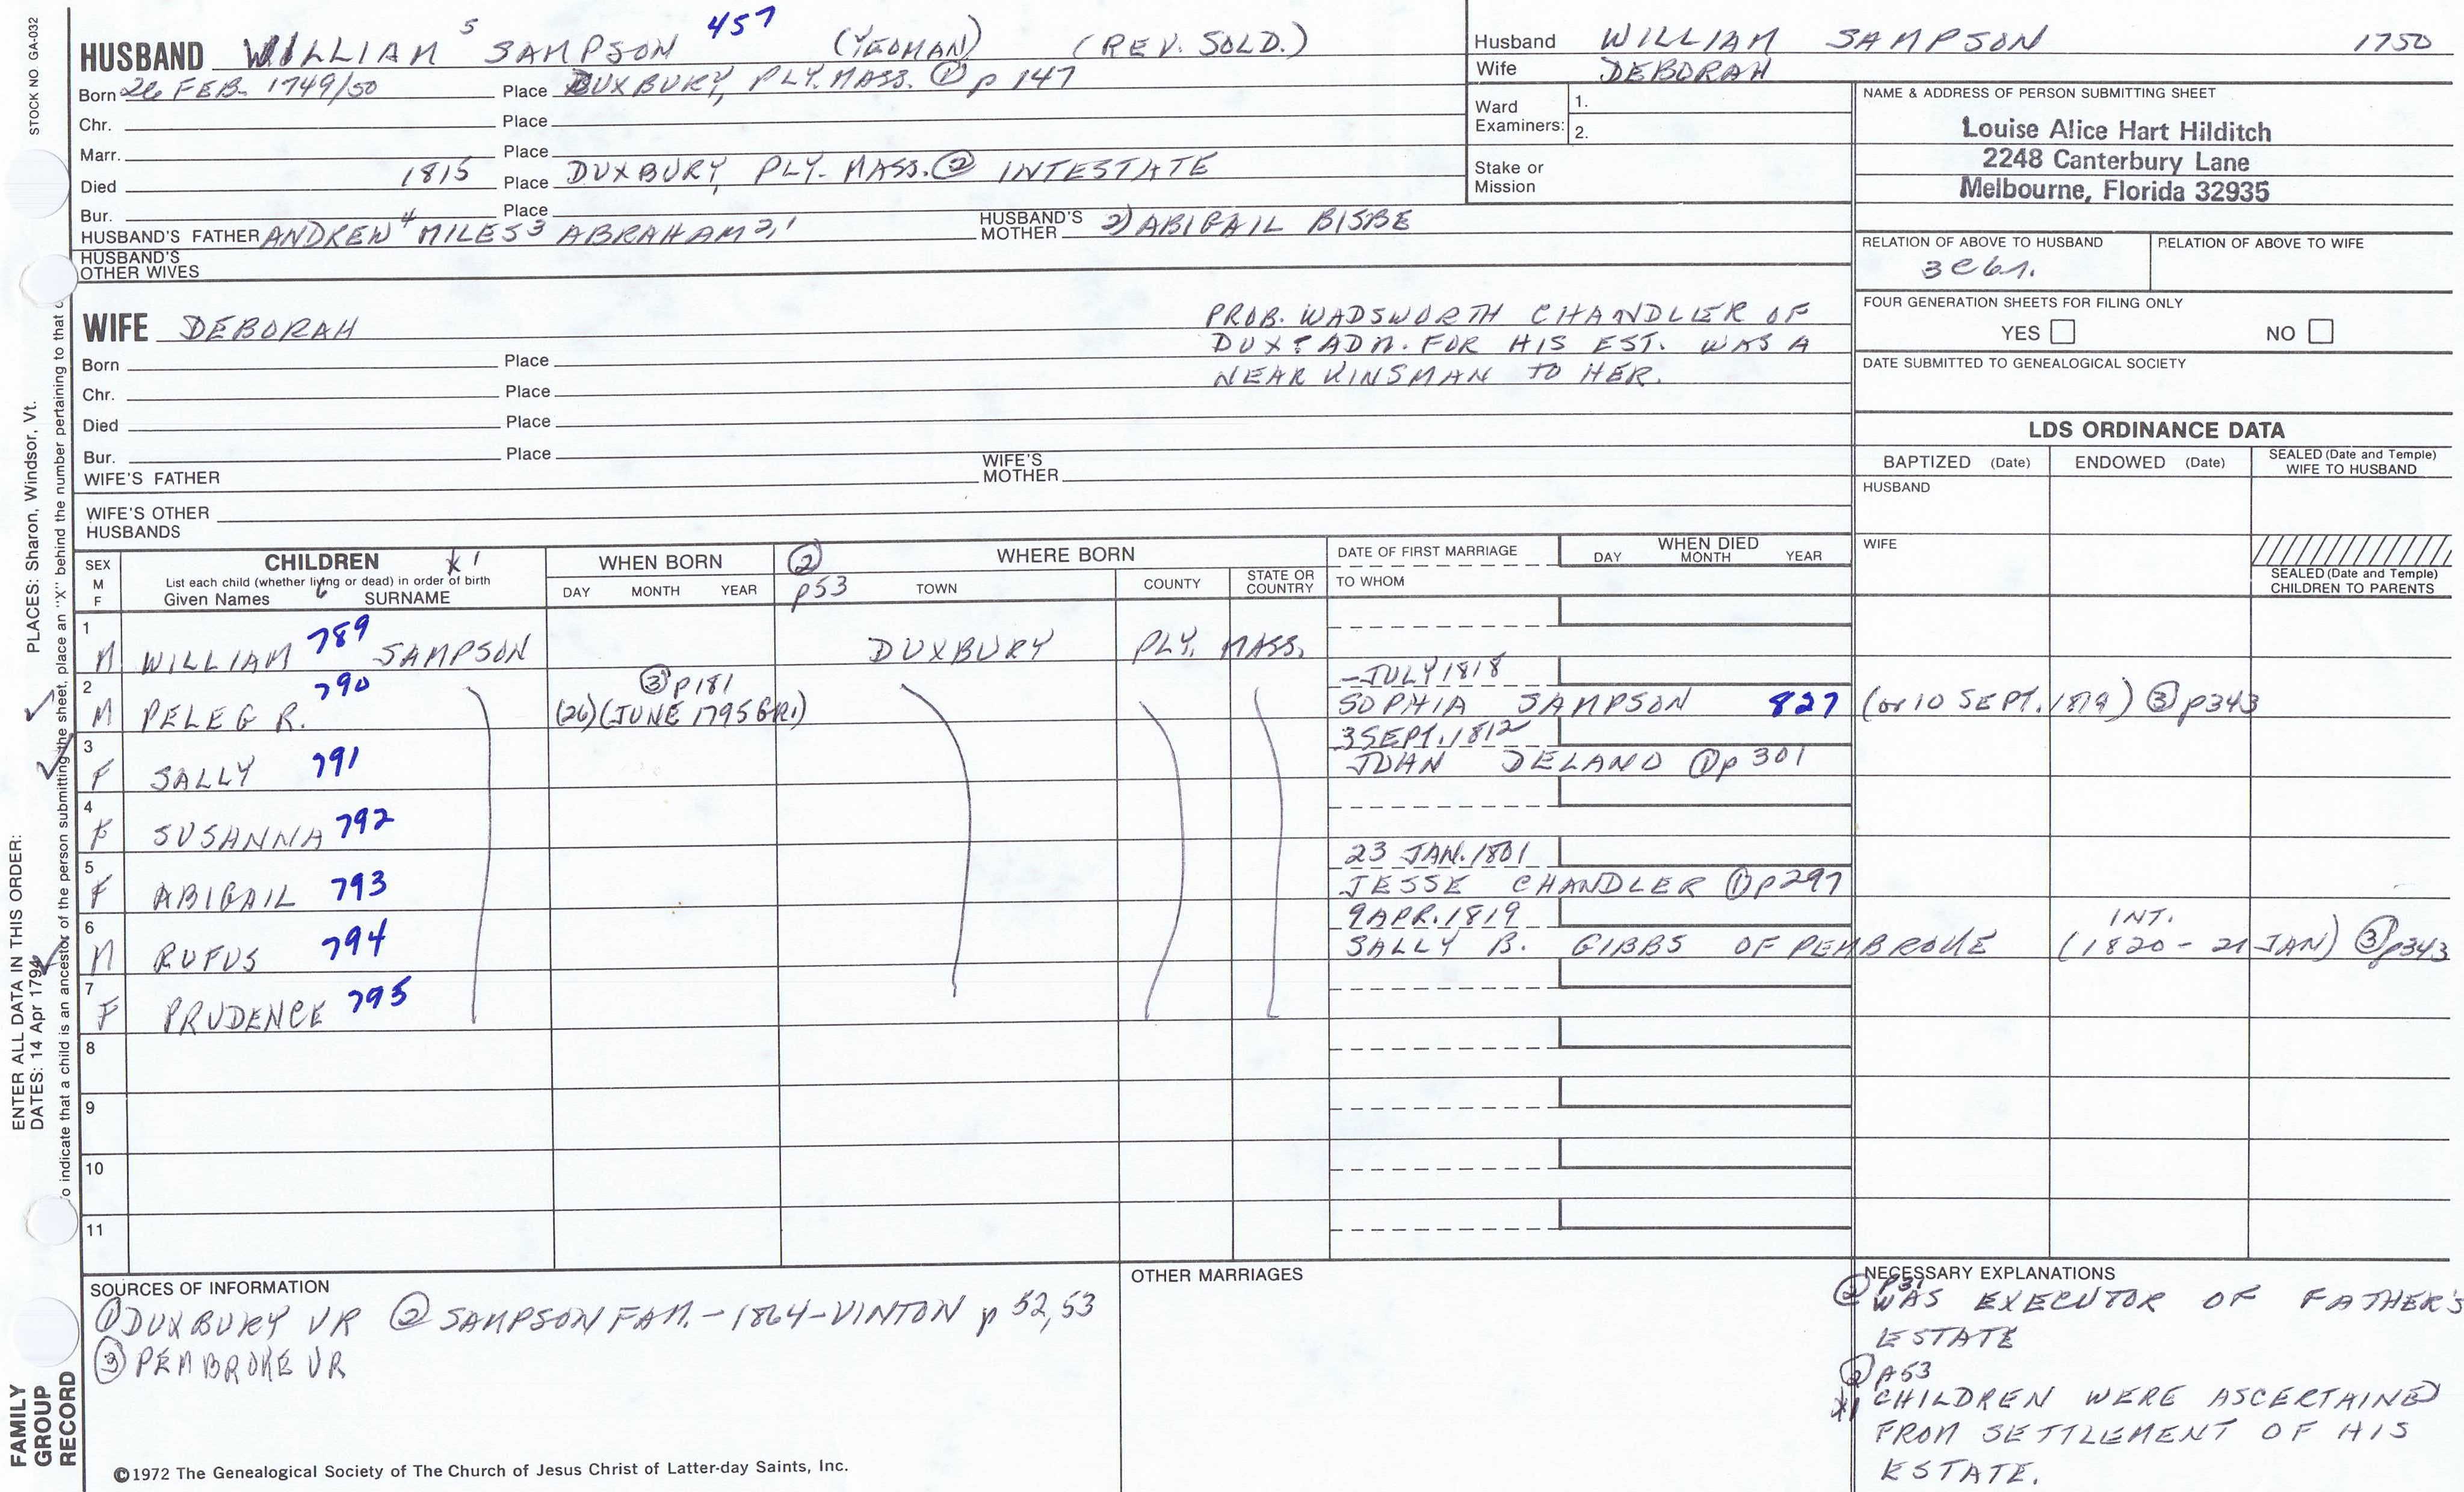 STOCK NO GA-032
HUSBAND WILLIAM 5 SAMPSON 457 (YEOMAN) (REV. SOLD.)
Born 26 FEB. 1749/50 Place DUXBURY, PLY. MASS. ① p 147
Chr. Place
Marr. Place
Died 1815 Place DUXBURY, PLY. MASS. ② INTESTATE
Bur. Place
HUSBAND'S FATHER ANDREW 4 MILES 3 ABRAHAM 2,1 HUSBAND'S MOTHER 2) ABIGAIL BISBE
HUSBAND'S OTHER WIVES
Husband WILLIAM SAMPSON 1750
Wife DEBORAH
Ward Examiners: 1.
2.
Stake or Mission
NAME & ADDRESS OF PERSON SUBMITTING SHEET
Louise Alice Hart Hilditch
2248 Canterbury Lane
Melbourne, Florida 32935
RELATION OF ABOVE TO HUSBAND RELATION OF ABOVE TO WIFE
FOUR GENERATION SHEETS FOR FILING ONLY
YES NO
DATE SUBMITTED TO GENEALOGICAL SOCIETY
WIFE DEBORAH
PROB. WADSWORTH CHANDLER OF
ADM. FOR HIS EST. WAS A
NEAR KINSMAN TO HER.
Born Place
Chr. Place
Died Place
Bur. Place
WIFE'S FATHER WIFE'S MOTHER
WIFE'S OTHER HUSBANDS
LDS ORDINANCE DATA
BAPTIZED (Date) ENDOWED (Date) SEALED (Date and Temple) WIFE TO HUSBAND
HUSBAND
WIFE
SEALED (Date and Temple) CHILDREN TO PARENTS
SEX M F
CHILDREN *1
List each child (whether living or dead) in order of birth
Given Names 6 SURNAME
WHEN BORN
DAY MONTH YEAR
② p53
WHERE BORN
TOWN COUNTY STATE OR COUNTRY
DATE OF FIRST MARRIAGE
TO WHOM
WHEN DIED
DAY MONTH YEAR
1 M WILLIAM 789 SAMPSON DUXBURY PLY. MASS.
2 M PELEG R. 790 ③ p181 (26) (JUNE 1795 GR1) – JULY 1818
SOPHIA SAMPSON 827 (or 10 SEPT. 1819) ③ p343
3 F SALLY 791 3 SEPT. 1812
DELAND ① p 301
4 F SUSANNA 792
5 F ABIGAIL 793 23 JAN. 1801
JESSE CHANDLER ① p297
6 M RUFUS 794 9 APR. 1819
SALLY B. GIBBS OF PEMBROKE INT. (1820 - 21 JAN) ③ p343
7 F PRUDENCE 795
8
9
10
11
SOURCES OF INFORMATION
① DUXBURY VR ② SAMPSON FAM. - 1864 - VINTON p 52, 53
③ PEMBROKE VR
OTHER MARRIAGES
NECESSARY EXPLANATIONS
② P31
WAS EXECUTOR OF FATHER'S
ESTATE
② P53
*1 CHILDREN WERE ASCERTAINED
FROM SETTLEMENT OF HIS
ESTATE.
©1972 The Genealogical Society of The Church of Jesus Christ of Latter-day Saints, Inc.
ENTER ALL DATA IN THIS ORDER:
DATES: 14 Apr 1794
PLACES: Sharon, Windsor, Vt.
o indicate that a child is an ancestor of the person submitting the sheet, place an "X" behind the number pertaining to that
FAMILY
GROUP
RECORD